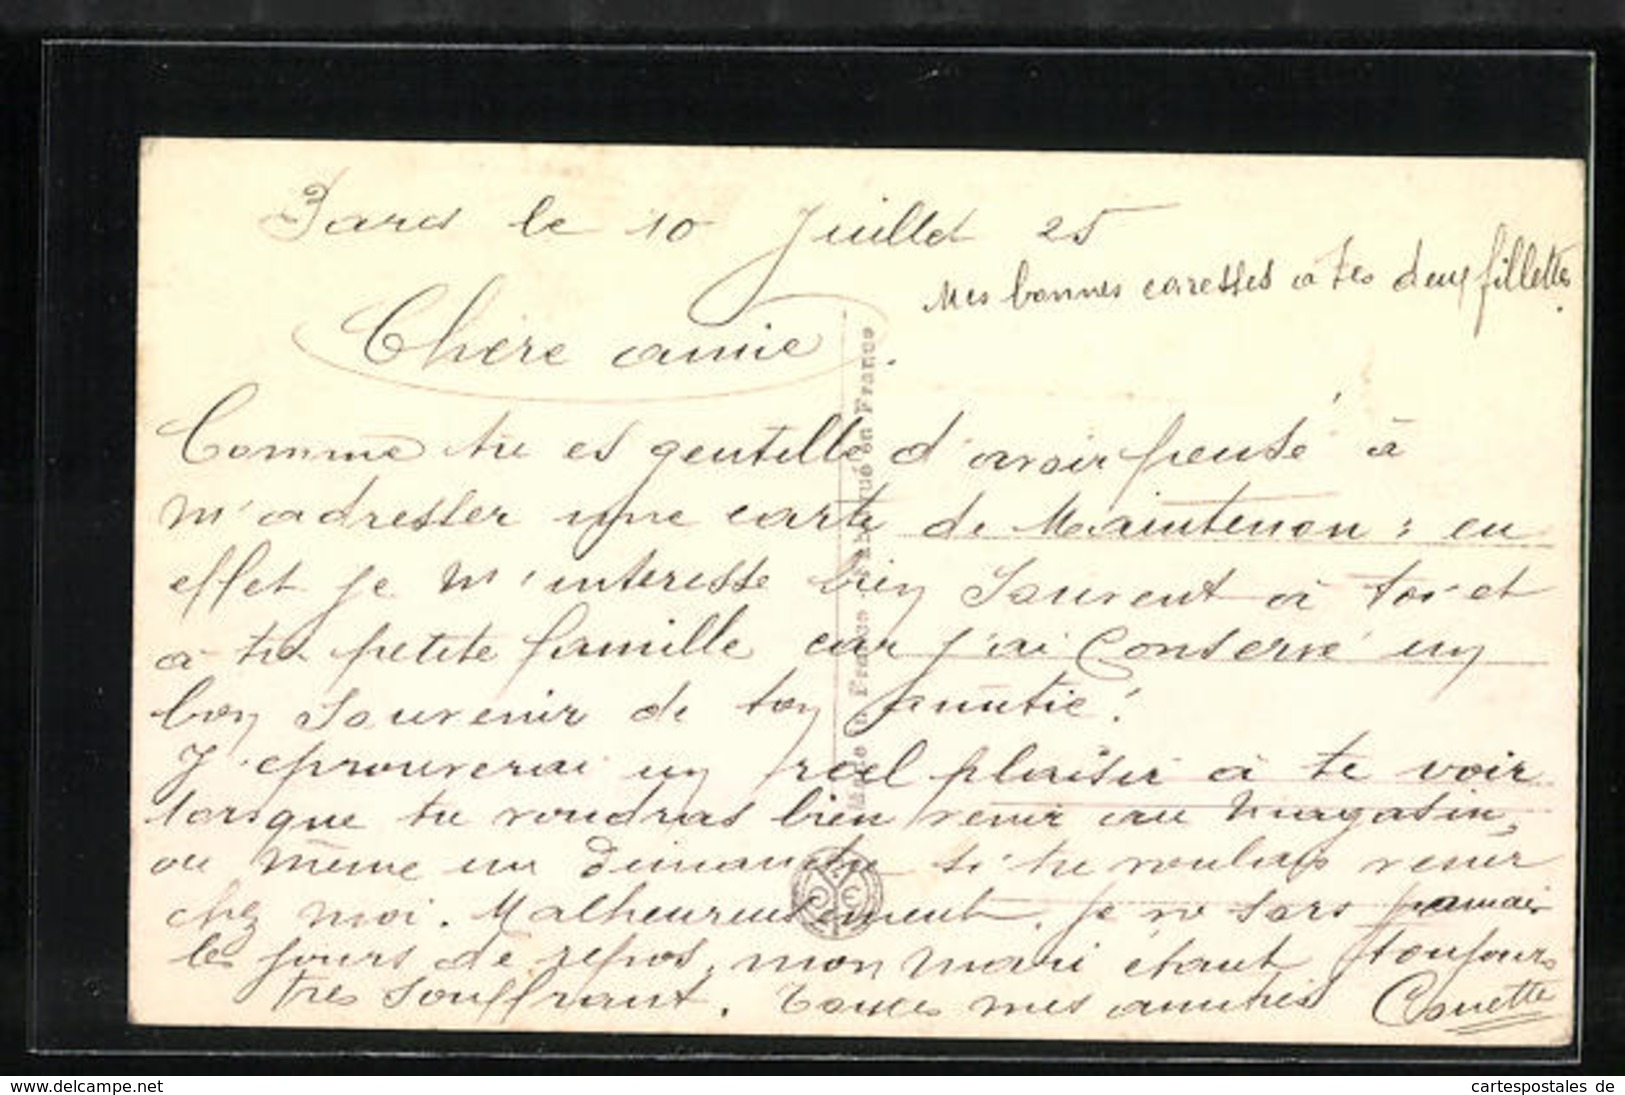 Paris le 10 Juillet 25
Mes bonnes caresses à tes deux fillettes.
Chère amie.
Comme tu es gentille d'avoir pensé à
m'adresser une carte de Maintenon : en
effet je m'interesse bien souvent à toi et
à ta petite famille car j'ai conservé un
bon souvenir de ton amitié !
J'eprouverai un réel plaisir à te voir
lorsque tu voudras bien venir au magasin,
ou même un Dimanche si tu voulais venir
chez moi. Malheureusement, je ne sors jamais
les jours de repos, mon mari étant toujours
très souffrant. Toutes mes amitiés
Made in France - Fabriqué en France
delcampe.net
cartespostales de